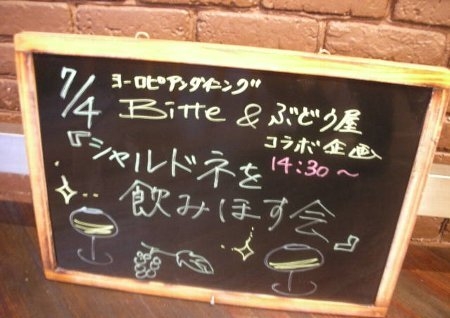 7/4
ヨーロピアンダイニング
Bitte & ぶどう屋
コラボ企画
14:30〜
『シャルドネを
飲みほす会』